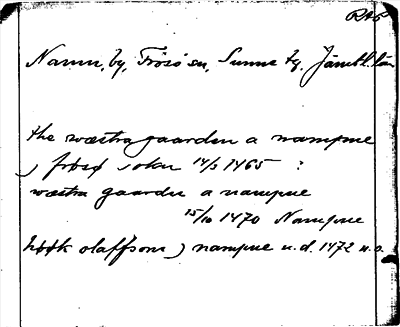 Namn, by, Frösö sn, Sunne tg. Jämtl. län
the wæstra gaarden a nampne
j frøsø sokn 14/3 1465 :
wæstra gaarden a nampne
15/10 1470 Nampne
høøk olaffson j nampne u.d. 1472